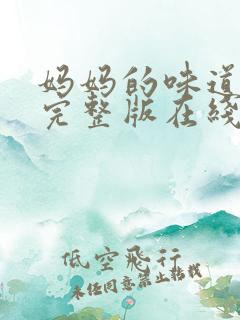 妈妈的味道
完整版在线
低空飛行
未经同意禁止转载